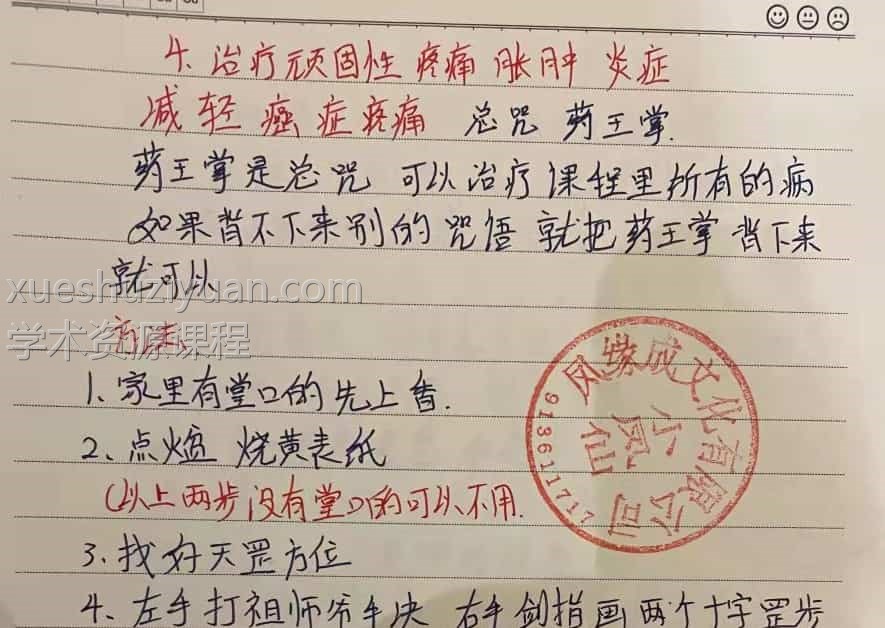 4. 治疗顽固性 疼痛 胀肿 炎症
减轻 癌症疼痛 总咒 药王掌.
药王掌是总咒 可以治疗课程里所有的病
如果背不下来别的咒语 就把药王掌背下来
就可以
xueshuziyuan.com
方法
学术资源课程
1、家里有堂口的先上香.
2、点烟 烧黄表纸
(以上两步没有堂口的可以不用.
3、找好天罡方位
4、左手打祖师爷手决 右手剑指画两个十字罡步
凤缘成文化有限公司
小凤仙
913611717